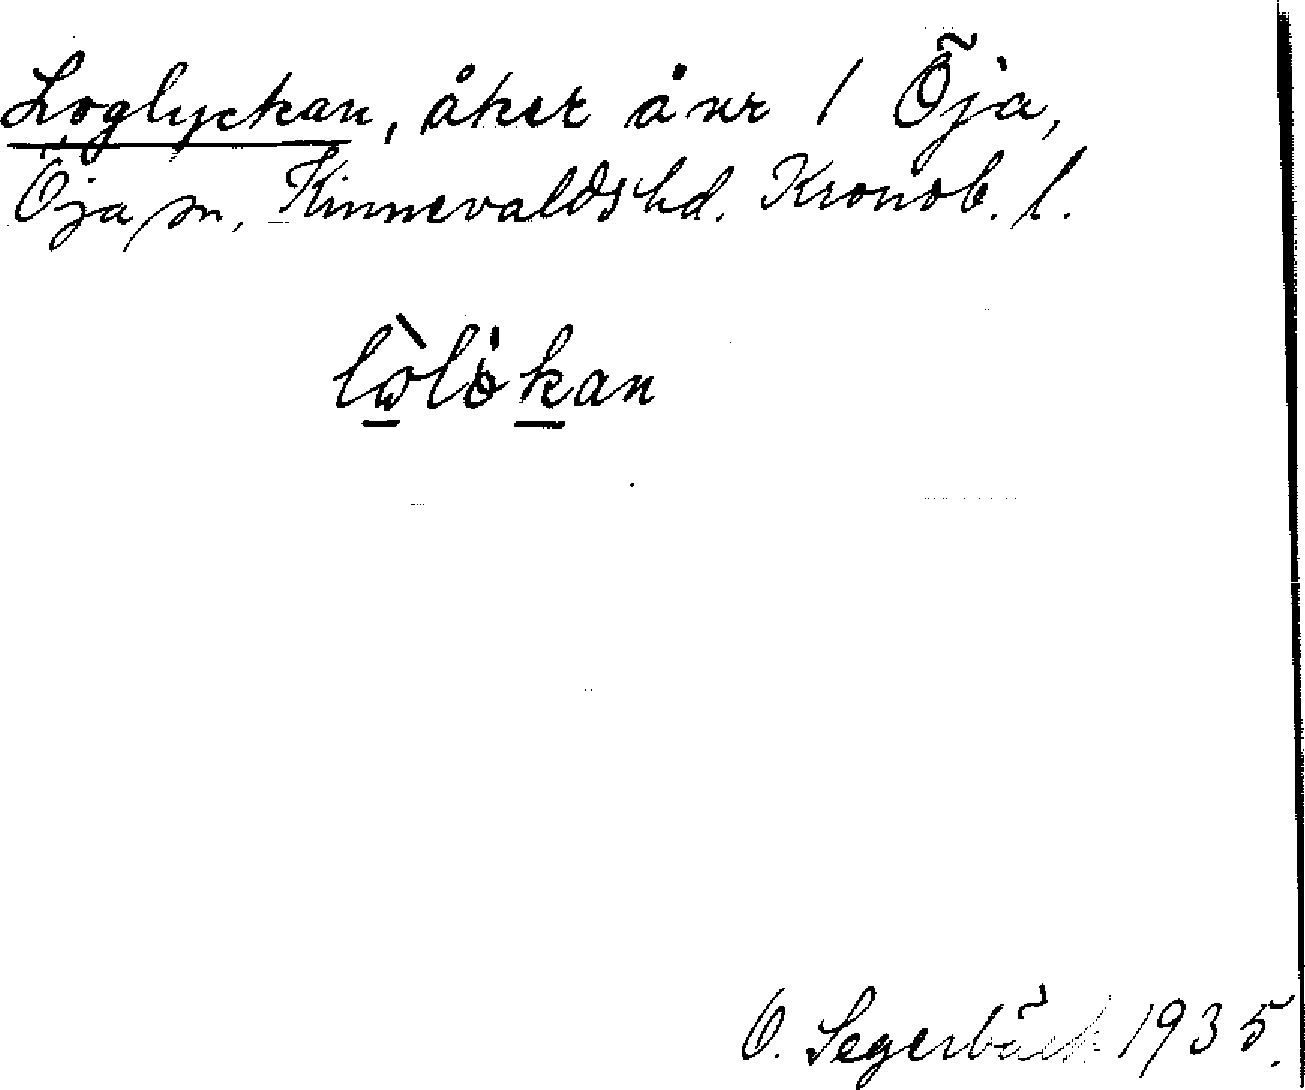 Loglyckan, åker å nr 1 Öja,
Öja sn, Kinnevalds hd. Kronob. l.
lòlökan
O. Segerbäck 1935.